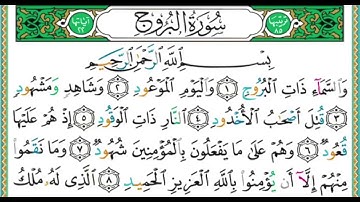 ترتيبها ٨٥ سُورَةُ البُرُوجِ آياتها ٢٢
بِسْمِ اللَّهِ الرَّحْمَٰنِ الرَّحِيمِ
وَالسَّمَاءِ ذَاتِ الْبُرُوجِ ١ وَالْيَوْمِ الْمَوْعُودِ ٢ وَشَاهِدٍ وَمَشْهُودٍ
٣ قُتِلَ أَصْحَابُ الْأُخْدُودِ ٤ النَّارِ ذَاتِ الْوَقُودِ ٥ إِذْ هُمْ عَلَيْهَا
قُعُودٌ ٦ وَهُمْ عَلَىٰ مَا يَفْعَلُونَ بِالْمُؤْمِنِينَ شُهُودٌ ٧ وَمَا نَقَمُوا
مِنْهُمْ إِلَّا أَن يُؤْمِنُوا بِاللَّهِ الْعَزِيزِ الْحَمِيدِ ٨ الَّذِي لَهُ مُلْكُ